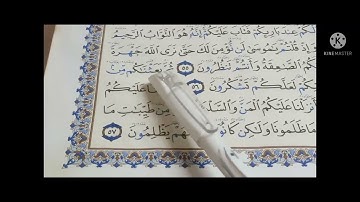 لَّكُمْ عِندَ بَارِئِكُمْ فَتَابَ عَلَيْكُمْ إِنَّهُ هُوَ التَّوَّابُ الرَّحِيمُ
وَإِذْ قُلْتُمْ يَٰمُوسَىٰ لَن نُّؤْمِنَ لَكَ حَتَّىٰ نَرَى اللَّهَ جَهْرَةً
الصَّٰعِقَةُ وَأَنتُمْ تَنظُرُونَ ٥٥ بَعَثْنَٰكُم مِّن
لَعَلَّكُمْ تَشْكُرُونَ ٥٦ عَلَيْكُمُ
أَنزَلْنَا عَلَيْكُمُ الْمَنَّ مِن طَيِّبَٰتِ مَا
وَمَا ظَلَمُونَا وَلَٰكِن كَانُوا يَظْلِمُونَ ٥٧
KINEMASTER